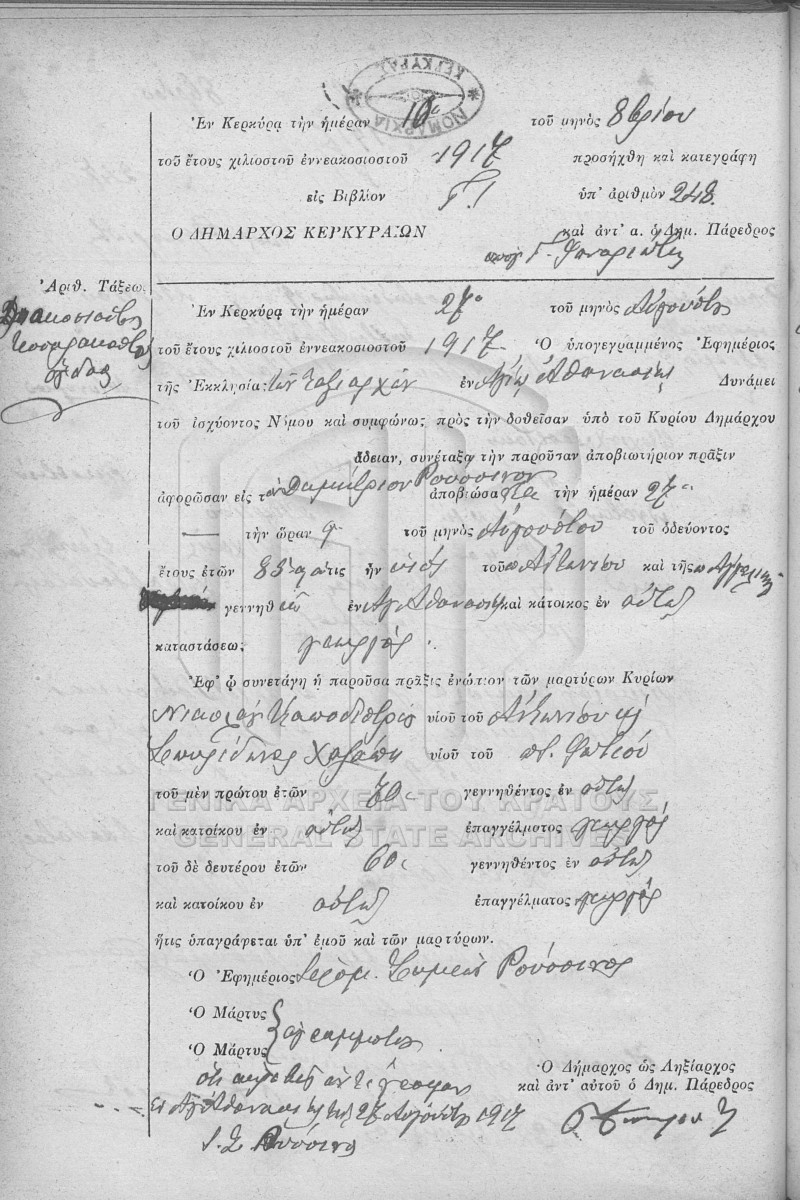 ΝΟΜΑΡΧΙΑ ΚΕΡΚΥΡΑΣ
Ἐν Κερκύρᾳ τὴν ἡμέραν 10 τοῦ μηνὸς 8βρίου
τοῦ ἔτους χιλιοστοῦ ἐννεακοσιοστοῦ 1917 προσήχθη καὶ κατεγράφη
εἰς Βιβλίον Γ. 1 ὑπ' ἀριθμὸν 248.
Ὁ ΔΗΜΑΡΧΟΣ ΚΕΡΚΥΡΑΙΩΝ καὶ ἀντ' α. ὁ Δημ. Πάρεδρος
Ἀριθ. Τάξεως
Διακοσιοστὸς
τεσσαρακοστὸς
ὄγδοος
Ἐν Κερκύρᾳ τὴν ἡμέραν 27 τοῦ μηνὸς Αὐγούστου
τοῦ ἔτους χιλιοστοῦ ἐννεακοσιοστοῦ 1917 Ὁ ὑπογεγραμμένος Ἐφημέριος
τῆς Ἐκκλησίας τῶν Ταξιαρχῶν ἐν Ἁγίῳ Ἀθανασίῳ Δυνάμει
τοῦ ἰσχύοντος Νόμου καὶ συμφώνως πρὸς τὴν δοθεῖσαν ὑπὸ τοῦ Κυρίου Δημάρχου
ἄδειαν, συνέταξα τὴν παροῦσαν ἀποβιωτήριον πρᾶξιν
ἀφορῶσαν εἰς τὸν Δημήτριον Ρούσσινον ἀποβιώσαντα τὴν ἡμέραν 27
τὴν ὥραν 9 τοῦ μηνὸς Αὐγούστου τοῦ ὁδεύοντος
ἔτους ἐτῶν 83 ὅστις ἦν υἱὸς τοῦ π Ἀντωνίου καὶ τῆς π Ἀγγελικῆς
γεννηθεὶς ἐν Ἁγ Ἀθανασίῳ καὶ κάτοικος ἐν αὐτῷ
καταστάσεως γεωργὸς.
Ἐφ' ᾧ συνετάγη ἡ παροῦσα πρᾶξις ἐνώπιον τῶν μαρτύρων Κυρίων
Καποδίστρια υἱοῦ τοῦ Ἀντωνίου κ
Σπυρίδωνος υἱοῦ τοῦ π. Φωτίου
τοῦ μὲν πρώτου ἐτῶν 70 γεννηθέντος ἐν αὐτῷ
καὶ κατοίκου ἐν αὐτῷ ἐπαγγέλματος γεωργὸς
τοῦ δὲ δευτέρου ἐτῶν 60 γεννηθέντος ἐν αὐτῷ
καὶ κατοίκου ἐν αὐτῷ ἐπαγγέλματος γεωργὸς
ἥτις ὑπαγράφεται ὑπ' ἐμοῦ καὶ τῶν μαρτύρων.
Ὁ Ἐφημέριος Ἱερομ. Συμεὼν Ρούσσινος
Ὁ Μάρτυς
ἀγράμματοι
Ὁ Μάρτυς
ὅτι ἀκριβὲς ἀντίγραφον
Ἐν Ἁγ Ἀθανασίῳ τῇ 27 Αὐγούστου 1917
Ι. Σ Ρούσσινος
Ὁ Δήμαρχος ὡς Ληξίαρχος
καὶ ἀντ' αὐτοῦ ὁ Δημ. Πάρεδρος
ΓΕΝΙΚΑ ΑΡΧΕΙΑ ΤΟΥ ΚΡΑΤΟΥΣ
GENERAL STATE ARCHIVES